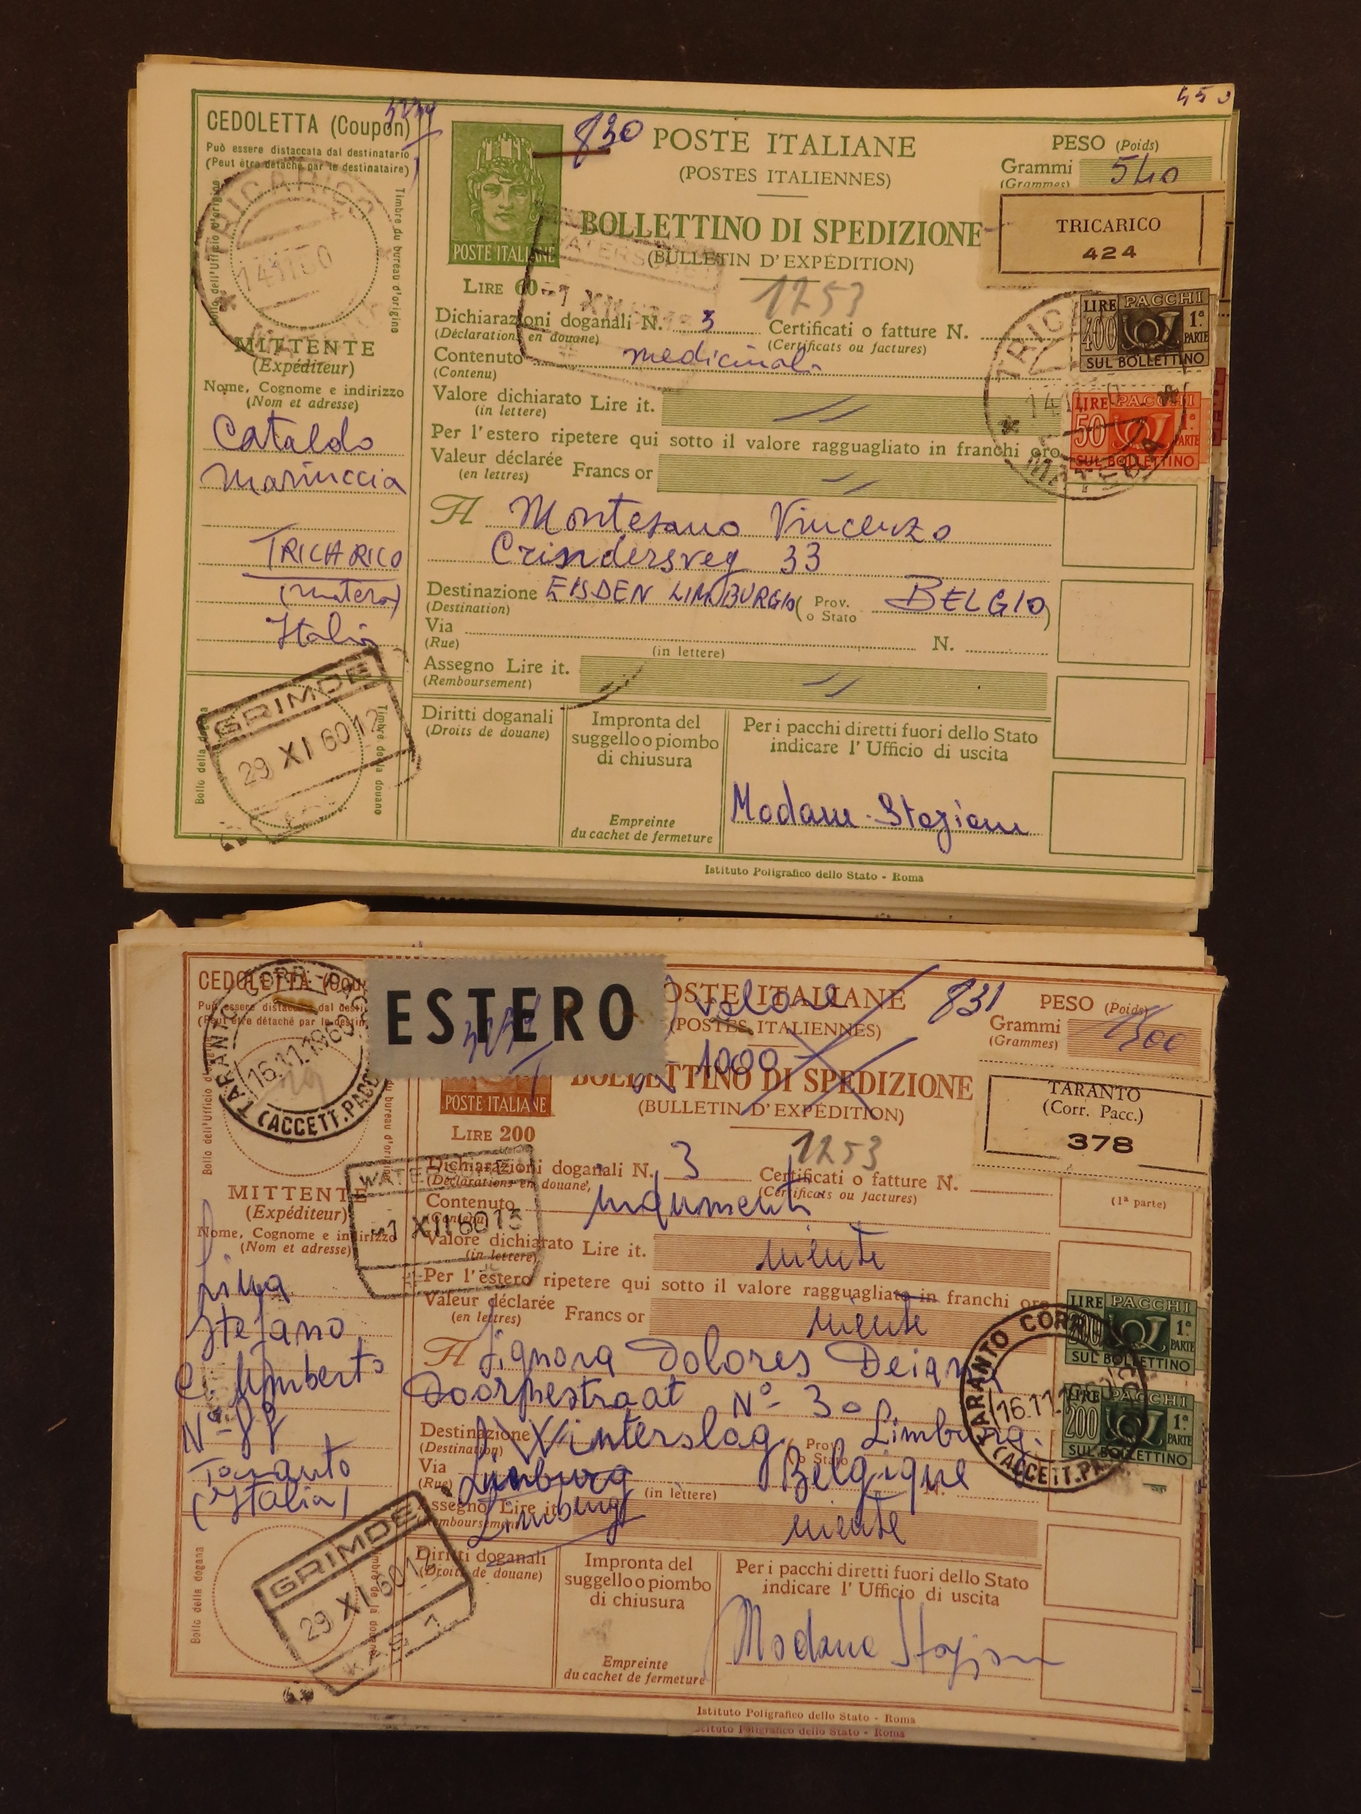 450
CEDOLETTA (Coupon)
Può essere distaccata dal destinatario
(Peut être détaché par le destinataire)
830
POSTE ITALIANE
(POSTES ITALIENNES)
PESO (Poids)
Grammi 540
(Grammes)
TRICARICO
424
POSTE ITALIANE
BOLLETTINO DI SPEDIZIONE
(BULLETIN D'EXPÉDITION)
LIRE 60
1253
Bollo dell'Ufficio d'origine
Timbre du bureau d'origine
TRICARICO
MATERA
Dichiarazioni doganali N. 3 Certificati o fatture N.
(Déclarations en douane) (Certificats ou factures)
Contenuto medicinali
(Contenu)
LIRE PACCHI
400 1ª PARTE
SUL BOLLETTINO
LIRE PACCHI
50 1ª PARTE
SUL BOLLETTINO
MITTENTE
(Expéditeur)
Nome, Cognome e indirizzo
(Nom et adresse)
Cataldo
Mariuccia
TRICARICO
(Matera)
Italia
Valore dichiarato Lire it.
(in lettere)
Per l'estero ripetere qui sotto il valore ragguagliato in franchi oro
Valeur déclarée Francs or
(en lettres)
A Montesano Vincenzo
Crindersveg 33
Destinazione EISDEN LIMBURGIO (Prov. o Stato BELGIO)
(Destination)
Via N.
(Rue) (in lettere)
Assegno Lire it.
(Remboursement)
GRIMDE
29 XI 60 12
Bollo della dogana
Timbre de la douane
Diritti doganali
(Droits de douane)
Impronta del
suggello o piombo
di chiusura
Empreinte
du cachet de fermeture
Per i pacchi diretti fuori dello Stato
indicare l'Ufficio di uscita
Modane
Istituto Poligrafico dello Stato - Roma
CEDOLETTA
ESTERO
POSTE ITALIANE
(POSTES ITALIENNES)
valore
1000
831
PESO (Poids)
Grammi 1500
(Grammes)
TARANTO
(Corr. Pacc.)
378
BOLLETTINO DI SPEDIZIONE
(BULLETIN D'EXPÉDITION)
POSTE ITALIANE
LIRE 200
1253
TARANTO CORR.
16.11.1960
(ACCETT. PACCHI)
Dichiarazioni doganali N. 3 Certificati o fatture N.
(Déclarations en douane) (Certificats ou factures)
(1ª parte)
Contenuto indumenti
Valore dichiarato Lire it. niente
(in lettere)
Per l'estero ripetere qui sotto il valore ragguagliato in franchi oro
Valeur déclarée Francs or niente
(en lettres)
1 XII 60 13
MITTENTE
(Expéditeur)
Nome, Cognome e indirizzo
(Nom et adresse)
Stefano
Umberto
Taranto
(Italia)
A Signora Dolores Deiana
Doorpestraat Nº 30
Destinazione Winterslag Limburg.
(Destination)
Via Limburg Belgique
(Rue) (in lettere)
Limburg
Assegno Lire it. niente
(Remboursement)
LIRE PACCHI
200 1ª PARTE
SUL BOLLETTINO
LIRE PACCHI
200 1ª PARTE
SUL BOLLETTINO
TARANTO CORR.
16.11.
(ACCETT. PA
GRIMDE
29 XI 60 12
Bollo della dogana
Diritti doganali
(Droits de douane)
Impronta del
suggello o piombo
di chiusura
Empreinte
du cachet de fermeture
Per i pacchi diretti fuori dello Stato
indicare l'Ufficio di uscita
Modane
Istituto Poligrafico dello Stato - Roma
Istituto Poligrafico dello Stato - Roma